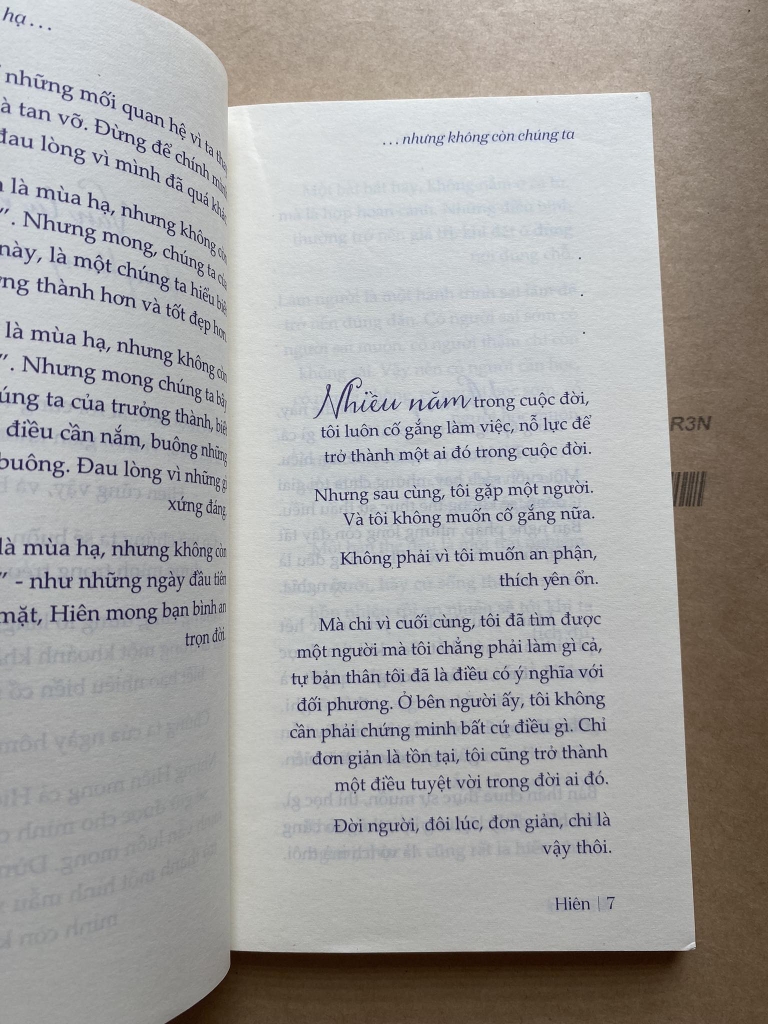 hạ...
những mối quan hệ vì ta thay
à tan vỡ. Đừng để chính mình
đau lòng vì mình đã quá khác.
là mùa hạ, nhưng không còn
”. Nhưng mong, chúng ta của
này, là một chúng ta hiểu biết
thành hơn và tốt đẹp hơn
là mùa hạ, nhưng không còn
”. Nhưng mong chúng ta bây
úng ta của trưởng thành, biết
điều cần nắm, buông những
buông. Đau lòng vì những gì
xứng đáng.
là mùa hạ, nhưng không còn
” - như những ngày đầu tiên
mặt, Hiên mong bạn bình an
trọn đời.
...nhưng không còn chúng ta
Nhiều năm trong cuộc đời,
tôi luôn cố gắng làm việc, nỗ lực để
trở thành một ai đó trong cuộc đời.
Nhưng sau cùng, tôi gặp một người.
Và tôi không muốn cố gắng nữa.
Không phải vì tôi muốn an phận,
thích yên ổn.
Mà chỉ vì cuối cùng, tôi đã tìm được
một người mà tôi chẳng phải làm gì cả,
tự bản thân tôi đã là điều có ý nghĩa với
đối phương. Ở bên người ấy, tôi không
cần phải chứng minh bất cứ điều gì. Chỉ
đơn giản là tồn tại, tôi cũng trở thành
một điều tuyệt vời trong đời ai đó.
Đời người, đôi lúc, đơn giản, chỉ là
vậy thôi.
Hiên | 7
R3N